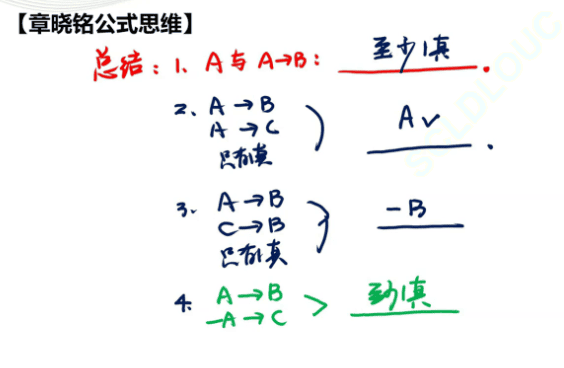 【章晓铭公式思维】
总结：1、A 与 A→B： 至少1真 .
2、A→B
A→C
只有1真
A✓ .
3、A→B
C→B
只有1真
-B
4. A→B
-A→C
至少1真